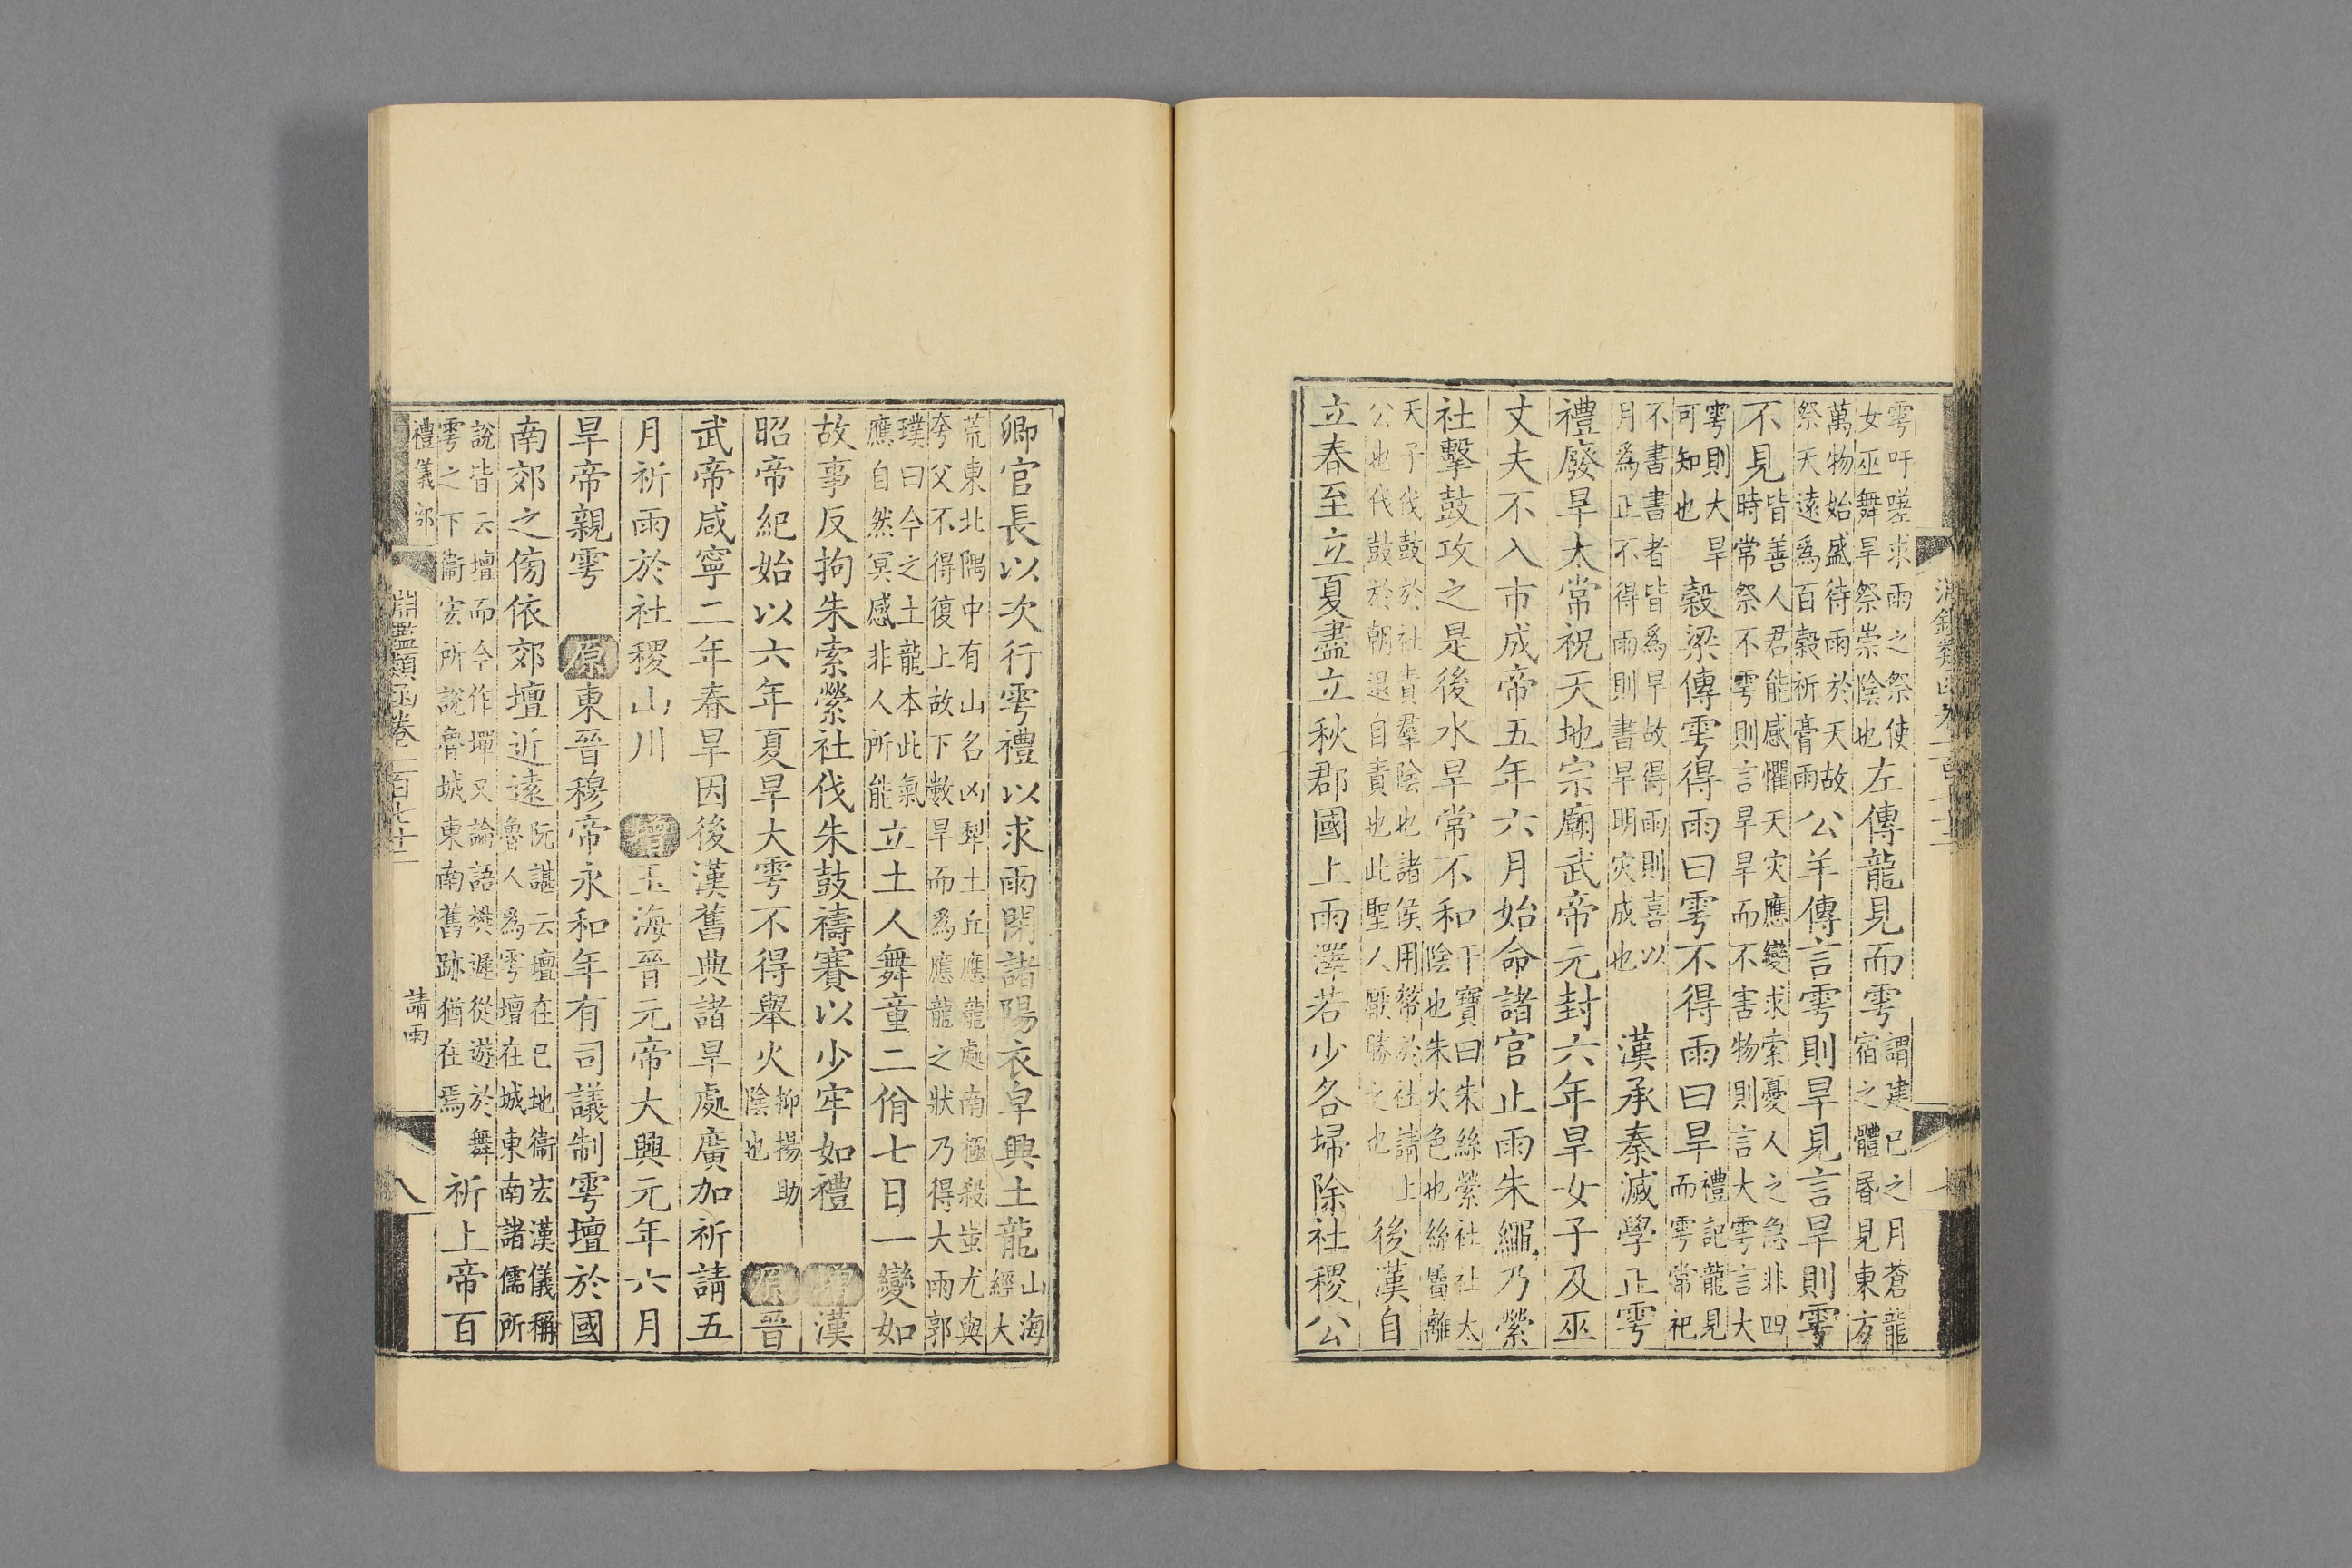 雩吁嗟求雨之祭使
女巫舞旱祭崇陰也
左傳龍見而雩
謂建巳之月蒼龍
宿之體昏見東方
萬物始盛待雨於天故
祭天遠爲百穀祈膏雨
公羊傳言雩則旱見言旱則雩
不見
皆善人君能感懼天灾應變求索憂人之急非四
時常祭不雩則言旱旱而不害物則言大雩言大
雩則大旱
可知也
穀梁傳雩得雨曰雩不得雨曰旱
禮記龍見
而雩常祀
不書書者皆爲旱故得雨則喜以
月爲正不得雨則書旱明灾成也
漢承秦滅學正雩
禮廢旱太常祝天地宗廟武帝元封六年旱女子及巫
丈夫不入市成帝五年六月始命諸官止雨朱繩乃縈
社擊鼓攻之是後水旱常不和
干寶曰朱絲縈社社太
陰也朱火色也絲屬離
天子伐鼓於社責羣陰也諸侯用幣於社請上
公也伐鼓於朝退自責也此聖人厭勝之也
後漢自
立春至立夏盡立秋郡國上雨澤若少各埽除社稷公
卿官長以次行雩禮以求雨閉諸陽衣皁興土龍
山海
經大
荒東北隅中有山名凶犁土丘應龍處南極殺蚩尤與
夸父不得復上故下數旱旱而爲應龍之狀乃得大雨郭
璞曰今之土龍本此氣
應自然冥感非人所能
立土人舞童二佾七日一變如
故事反拘朱索縈社伐朱鼓禱賽以少牢如禮 增漢
昭帝紀始以六年夏旱大雩不得舉火
抑揚助
陰也
原晉
武帝咸寧二年春旱因後漢舊典諸旱處廣加祈請五
月祈雨於社稷山川 增玉海晉元帝大興元年六月
旱帝親雩 原東晉穆帝永和年有司議制雩壇於國
南郊之傍依郊壇近遠
阮諶云壇在巳地衞宏漢儀稱
魯人爲雩壇在城東南諸儒所
說皆云壇而今作墠又論語樊遲從遊於舞
雩之下衞宏所說魯城東南舊跡猶在焉
祈上帝百
禮儀部
淵鑑類函卷一百七十二
請雨
八